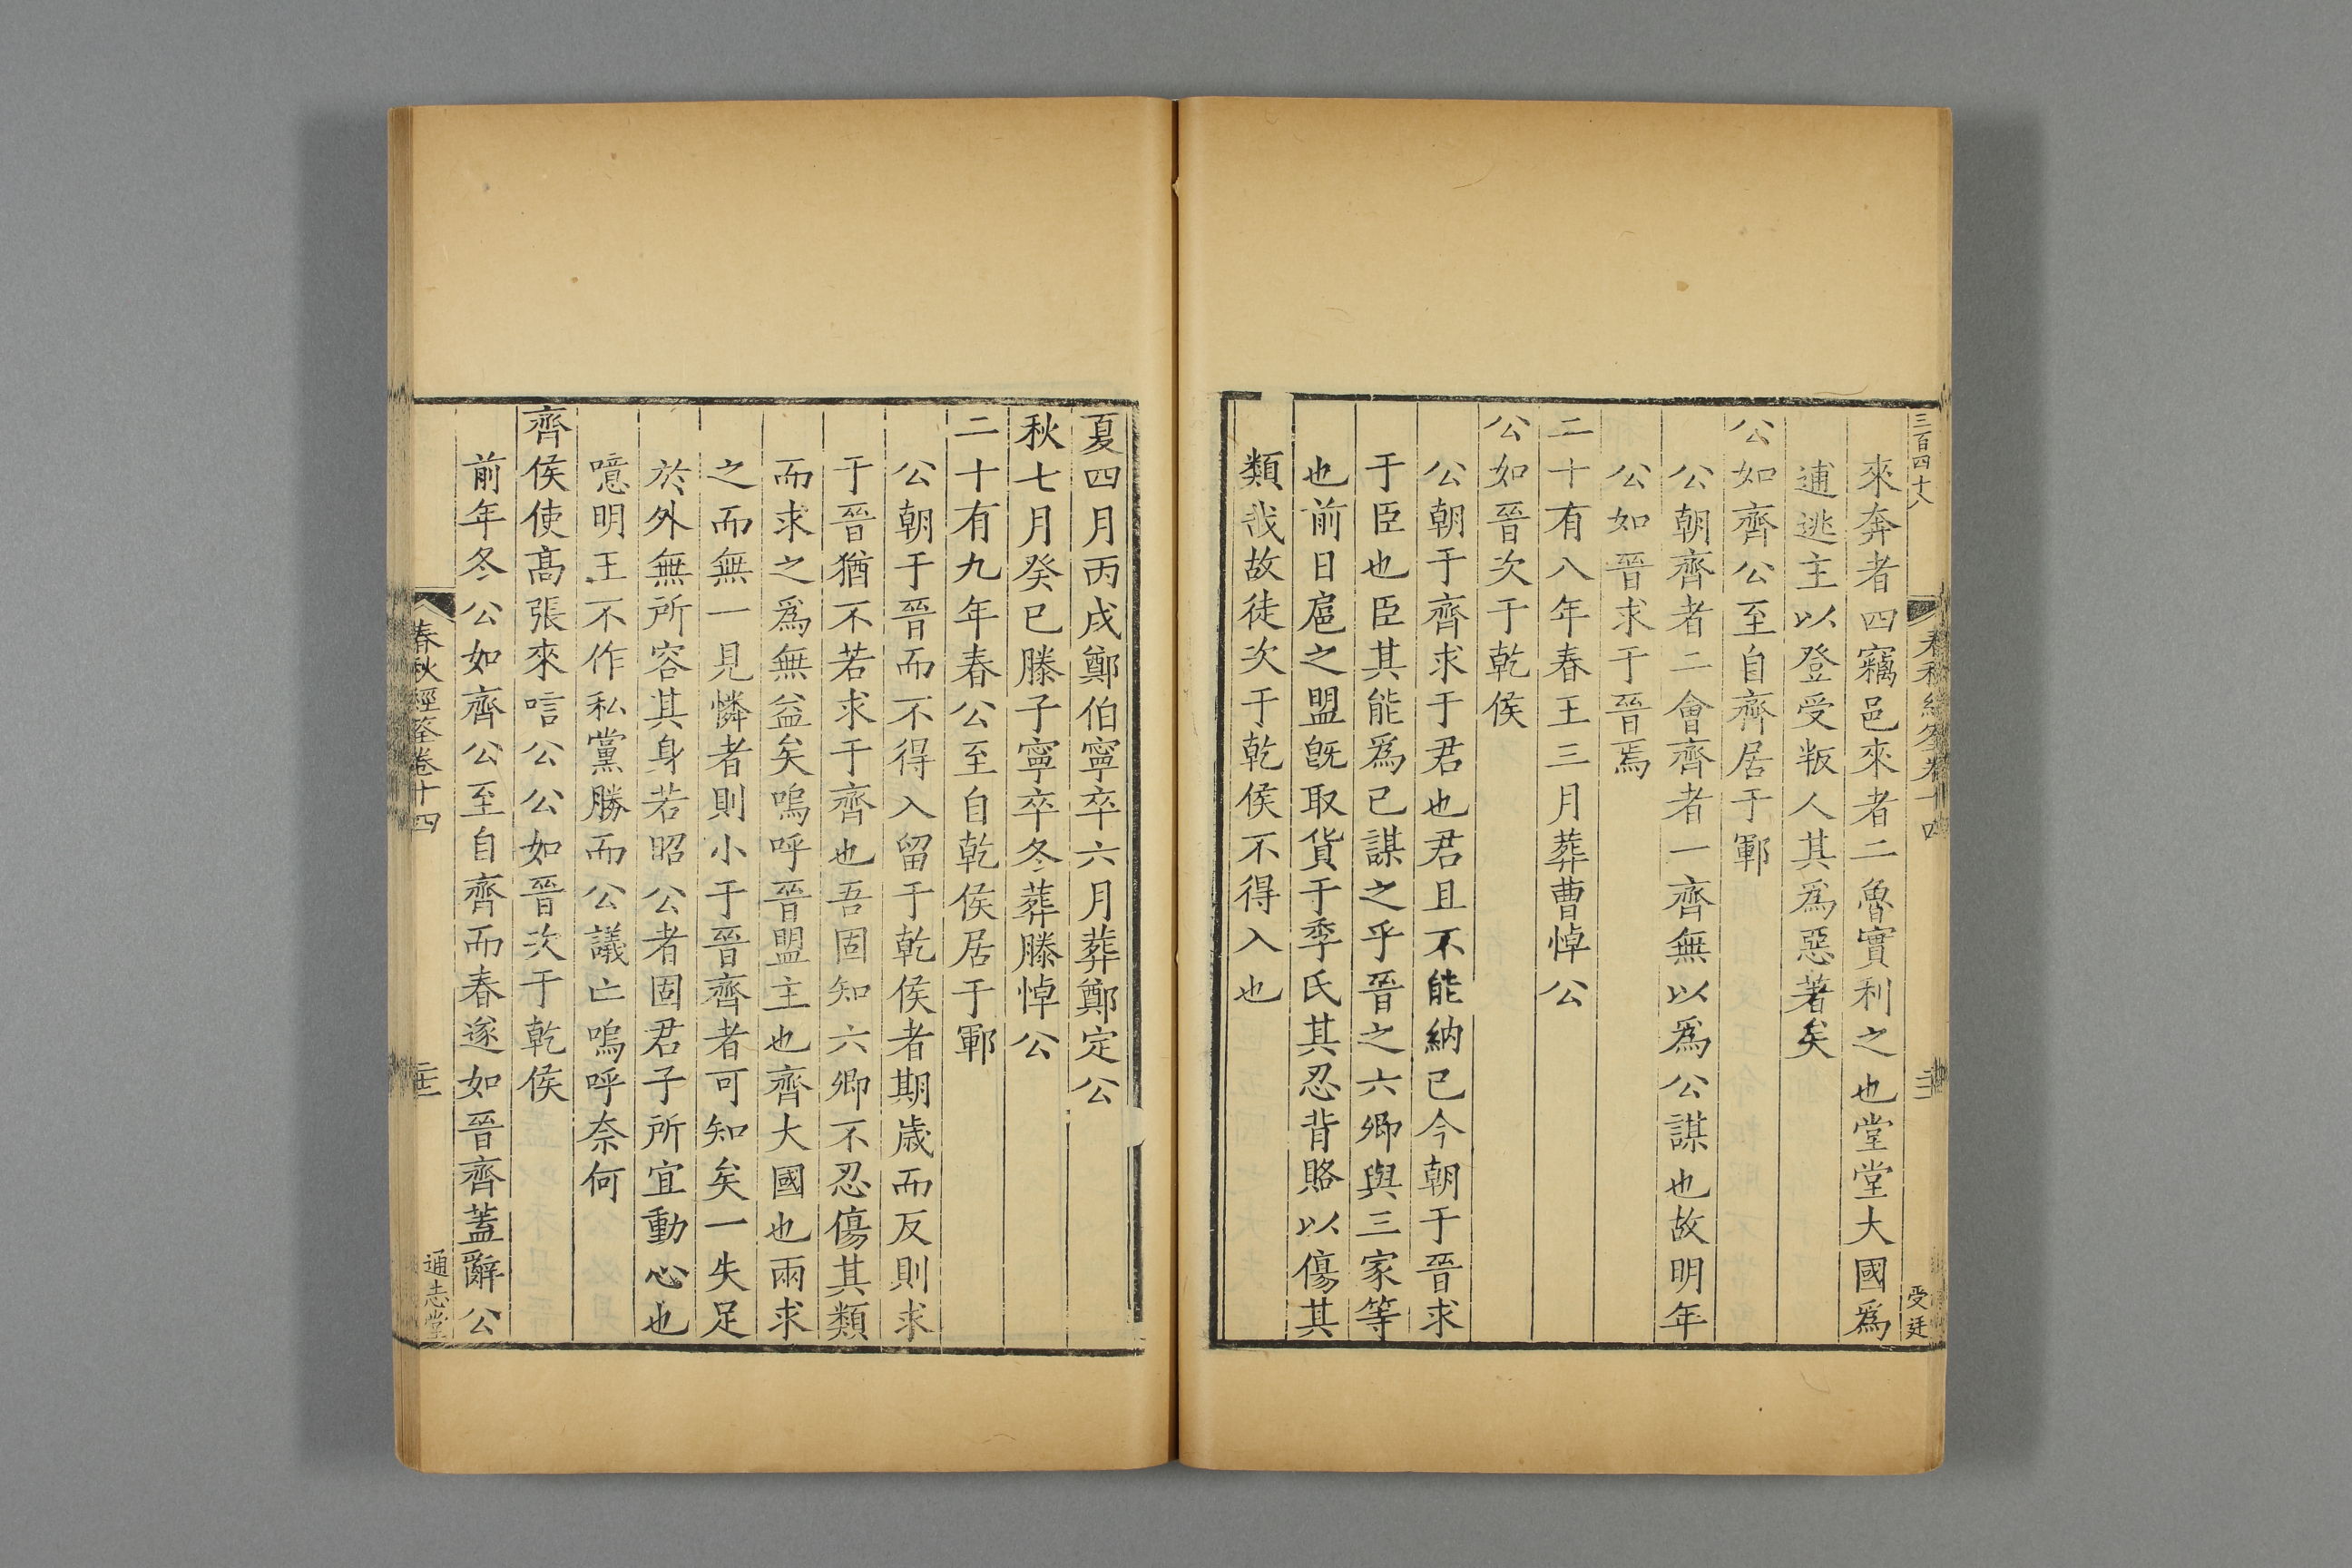 三百四十八
春秋經筌卷十四
受廷
來奔者四竊邑來者二魯實利之也堂堂大國爲
逋逃主以登受叛人其爲惡著矣
公如齊公至自齊居于鄆
公朝齊者二會齊者一齊無以爲公謀也故明年
公如晉求于晉焉
二十有八年春王三月葬曹悼公
公如晉次于乾侯
公朝于齊求于君也君且不能納已今朝于晉求
于臣也臣其能爲已謀之乎晉之六卿與三家等
也前日扈之盟旣取貨于季氏其忍背賂以傷其
類哉故徒次于乾侯不得入也
夏四月丙戌鄭伯寧卒六月葬鄭定公
秋七月癸巳滕子寧卒冬葬滕悼公
二十有九年春公至自乾侯居于鄆
公朝于晉而不得入留于乾侯者期歲而反則求
于晉猶不若求于齊也吾固知六卿不忍傷其類
而求之爲無益矣嗚呼晉盟主也齊大國也兩求
之而無一見憐者則小于晉齊者可知矣一失足
於外無所容其身若昭公者固君子所宜動心也
噫明王不作私黨勝而公議亡嗚呼奈何
齊侯使髙張來唁公公如晉次于乾侯
前年冬公如齊公至自齊而春遂如晉齊蓋辭公
春秋經筌卷十四
通志堂